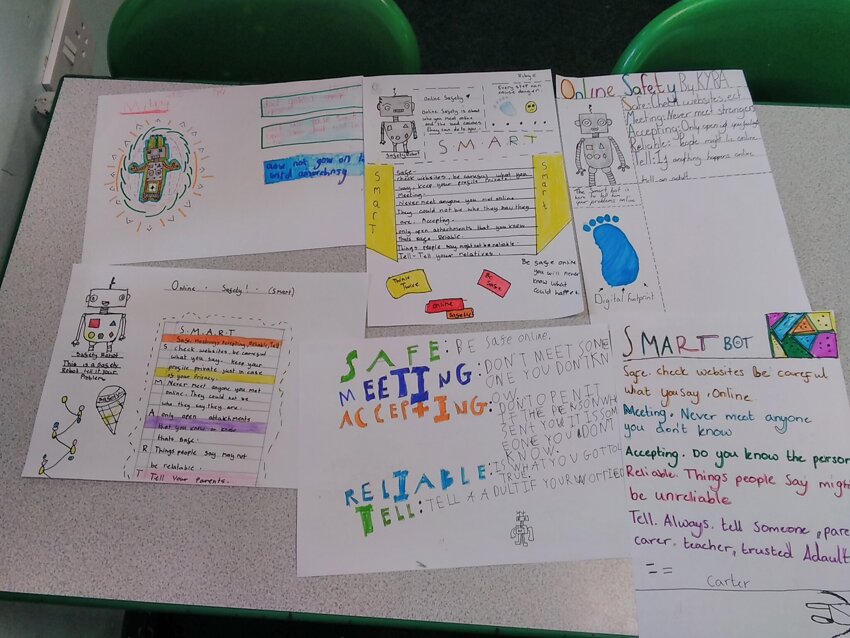 now not gow on the
Riley
Online Safety
Online Safety is about
who you meet online
and the bad causes
They can do to you.
Every step can
cause danger
Safety Robot
S M A R T
Smart
Smart
Safe.
check websites, be caresul what you
say, keep your profile private
Meeting.
Never meet anyone you met online
They could not be who they say they
are. Accepting.
only open attachments that you know
thats sage. Reliable.
Things people say might not be reliable.
Tell - Tell your relatives.
Think
Twice
Be
Sage
online
Sagety
Be sage online
you will never
know what
could happen.
Online Safety By KYRA
Safe: Check websites. ect
Meeting: Never meet strangers
Accepting: Only open if you
Reliable: People might lie online
Tell: If anything happens online
tell an adult
The Smart bot is
here to help him
your problems online
Digital footprint
Online. Safely! . (Smart)
S.M.A.R.T
Safe, Meeting, Accepting, Reliable, Tell
S check websites, be caresul
what you say. keep your
progile private just in case
is your privacy.
M Never meet anyone you met
online. They could not be
who they say they are.
A only open attachments
that you know or know
thats sage.
R Things people say may not
be relaiable.
T Tell Your Parents.
Safety Robot
This is a Safety
Robot tell it your
Problems
SAFE: BE Safe online.
MEETING: DON'T MEET SOME
ONE YOU DONTKN
OW.
ACCEPTING: DON'T OPEN IT
IF THE PERSON WH
SENT YOU IT IS SOM
EONE YOU DONT
KNOW.
RELIABLE: IS WHAT YOU GOT TOL
TRUE.
TELL: TELL A ADULT IF YOUR WORRIED
SMART BOT
Safe. check websites Be careful
what you say, Online.
Meeting, Never meet anyone
you don't know
Accepting. Do you know the person
Reliable. Things people say migh
be unreliable
Tell. Always. tell someone, pare
carer. teacher, trusted Adault
Carter